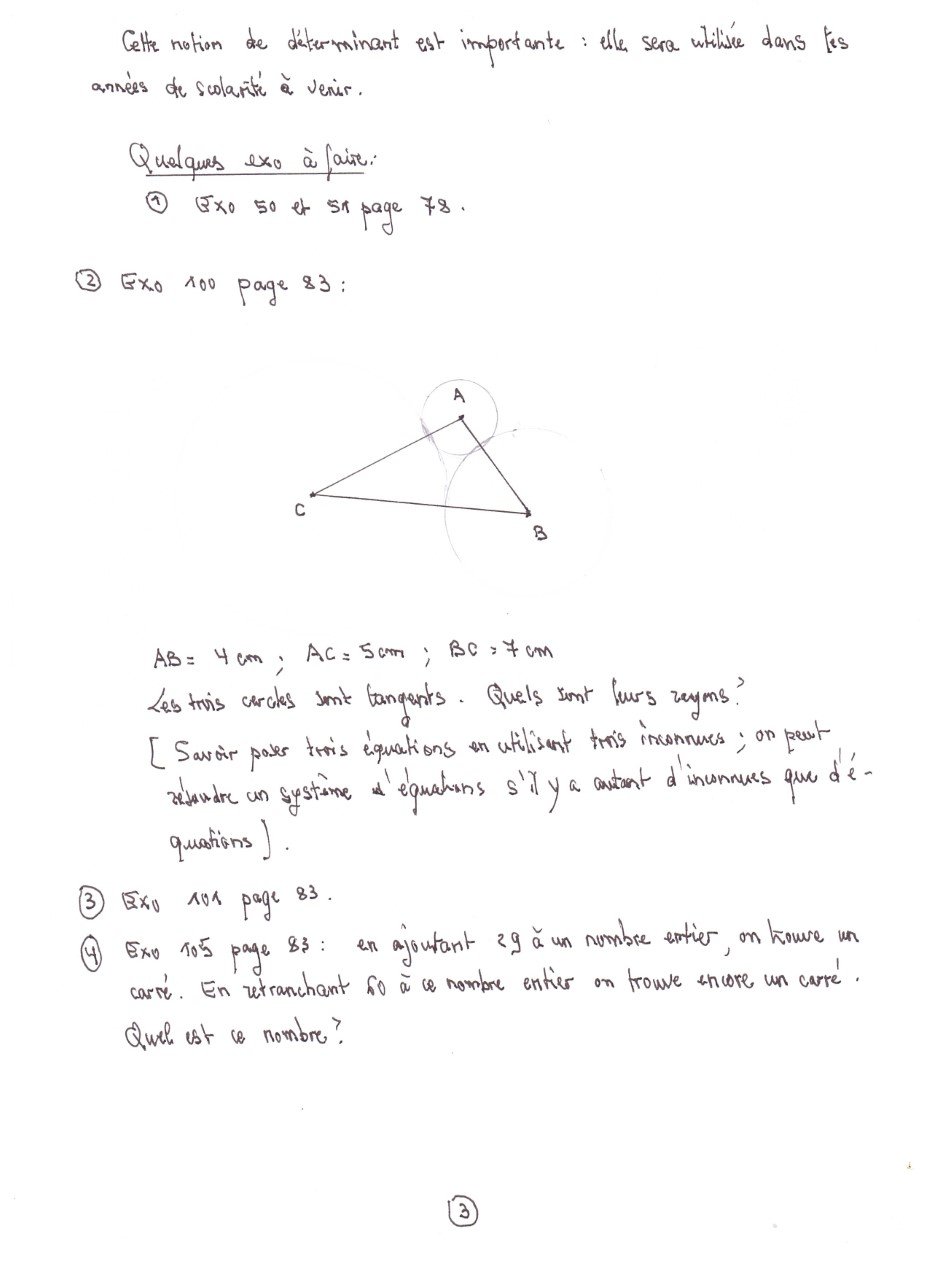 Cette notion de déterminant est importante : elle sera utilisée dans les
années de scolarité à venir.
Quelques exo à faire :
① Exo 50 et 51 page 78.
② Exo 100 page 83 :
A
C
B
AB = 4 cm ; AC = 5 cm ; BC = 7 cm
Les trois cercles sont tangents. Quels sont leurs rayons ?
[ Savoir poser trois équations en utilisant trois inconnues ; on peut
résoudre un système d'équations s'il y a autant d'inconnues que d'é-
quations ].
③ Exo 101 page 83.
④ Exo 105 page 83 : en ajoutant 29 à un nombre entier, on trouve un
carré. En retranchant 60 à ce nombre entier on trouve encore un carré.
Quel est ce nombre ?
③